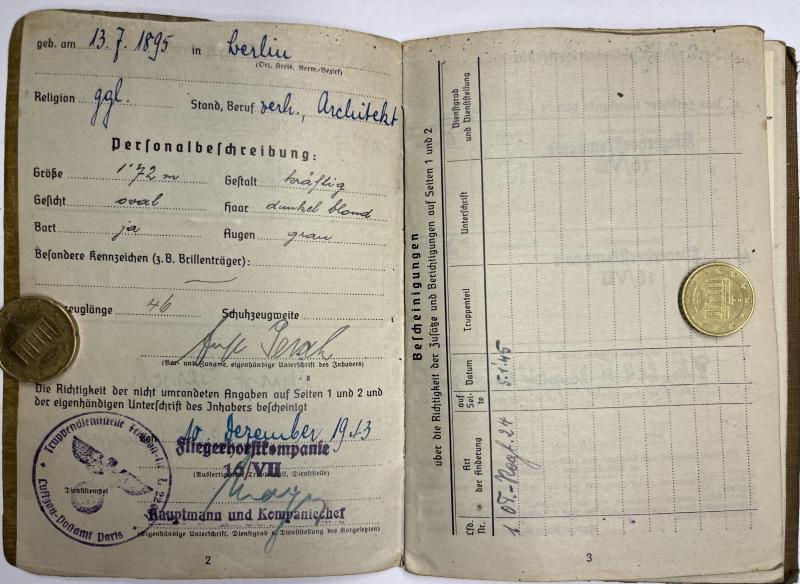 geb. am 13. 7. 1895 in Berlin
(Ort, Kreis, Verw.-Bezirk)
Religion ggl. Stand, Beruf verh., Architekt
Personalbeschreibung:
Größe 1'72 m Gestalt kräftig
Gesicht oval Haar dunkelblond
Bart ja Augen grau
Besondere Kennzeichen (z. B. Brillenträger):
zeuglänge 46 Schuhzeugweite
(Vor- und Zuname, eigenhändige Unterschrift des Inhabers)
Die Richtigkeit der nicht umrandeten Angaben auf Seiten 1 und 2 und
der eigenhändigen Unterschrift des Inhabers bescheinigt
den 10. Dezember 1943
Fliegerhorstkompanie
16/VII
Dienststempel
Luftgau-Postamt Paris
Hauptmann und Kompaniechef
(Eigenhändige Unterschrift, Dienstgrad u. Dienststellung des Vorgesetzten)
2
Bescheinigungen
über die Richtigkeit der Zusätze und Berichtigungen auf Seiten 1 und 2
Lfd. Nr.
Art der Änderung
auf Seite
Datum
Truppenteil
Unterschrift
Dienstgrad und Dienststellung
1
5.1.45
3